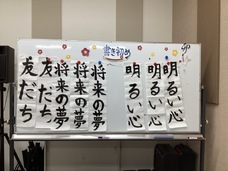 書き初め
卯
明るい心
明るい心
明るい心
将来の夢
将来の夢
将来の夢
友だち
友だち